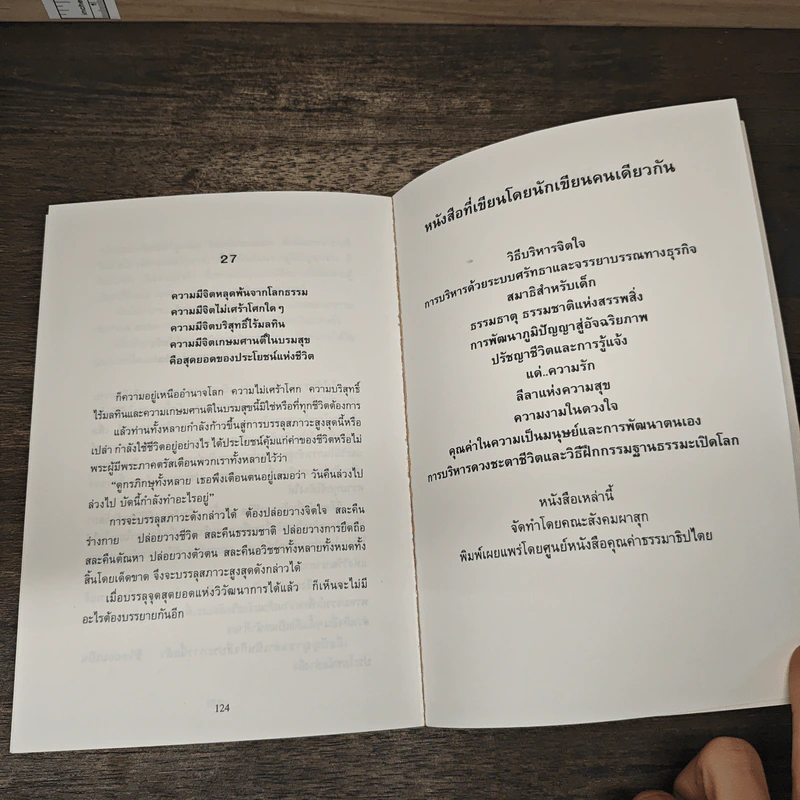 27
ความมีจิตหลุดพ้นจากโลกธรรม
ความมีจิตไม่เศร้าโศกใดๆ
ความมีจิตบริสุทธิ์ไร้มลทิน
ความมีจิตเกษมศานติ์ในบรมสุข
คือสุดยอดของประโยชน์แห่งชีวิต
ก็ความอยู่เหนืออำนาจโลก ความไม่เศร้าโศก ความบริสุทธิ์
ไร้มลทินและความเกษมศานติ์ในบรมสุขนี้มิใช่หรือที่ทุกชีวิตต้องการ
แล้วท่านทั้งหลายกำลังก้าวขึ้นสู่การบรรลุสภาวะสูงสุดนี้หรือ
เปล่า กำลังใช้ชีวิตอยู่อย่างไร ได้ประโยชน์คุ้มแก่ค่าของชีวิตหรือไม่
พระผู้มีพระภาคตรัสเตือนพวกเราทั้งหลายไว้ว่า
"ดูกรภิกษุทั้งหลาย เธอพึงเตือนตนอยู่เสมอว่า วันคืนล่วงไป
ล่วงไป บัดนี้กำลังทำอะไรอยู่"
การจะบรรลุสภาวะดังกล่าวได้ ต้องปล่อยวางจิตใจ สละคืน
ร่างกาย ปล่อยวางชีวิต สละคืนธรรมชาติ ปล่อยวางการยึดถือ
สละคืนตัณหา ปล่อยวางตัวตน สละคืนอวิชชาทั้งหลายทั้งหมดทั้ง
สิ้นโดยเด็ดขาด จึงจะบรรลุสภาวะสูงสุดดังกล่าวได้
เมื่อบรรลุจุดสุดยอดแห่งวิวัฒนาการได้แล้ว ก็เห็นจะไม่มี
อะไรต้องบรรยายกันอีก
124
หนังสือที่เขียนโดยนักเขียนคนเดียวกัน
วิธีบริหารจิตใจ
การบริหารด้วยระบบศรัทธาและจรรยาบรรณทางธุรกิจ
สมาธิสำหรับเด็ก
ธรรมธาตุ ธรรมชาติแห่งสรรพสิ่ง
การพัฒนาภูมิปัญญาสู่อัจฉริยภาพ
ปรัชญาชีวิตและการรู้แจ้ง
แด่..ความรัก
ลีลาแห่งความสุข
ความงามในดวงใจ
คุณค่าในความเป็นมนุษย์และการพัฒนาตนเอง
การบริหารดวงชะตาชีวิตและวิธีฝึกกรรมฐานธรรมะเปิดโลก
หนังสือเหล่านี้
จัดทำโดยคณะสังคมผาสุก
พิมพ์เผยแพร่โดยศูนย์หนังสือคุณค่าธรรมาธิปไตย